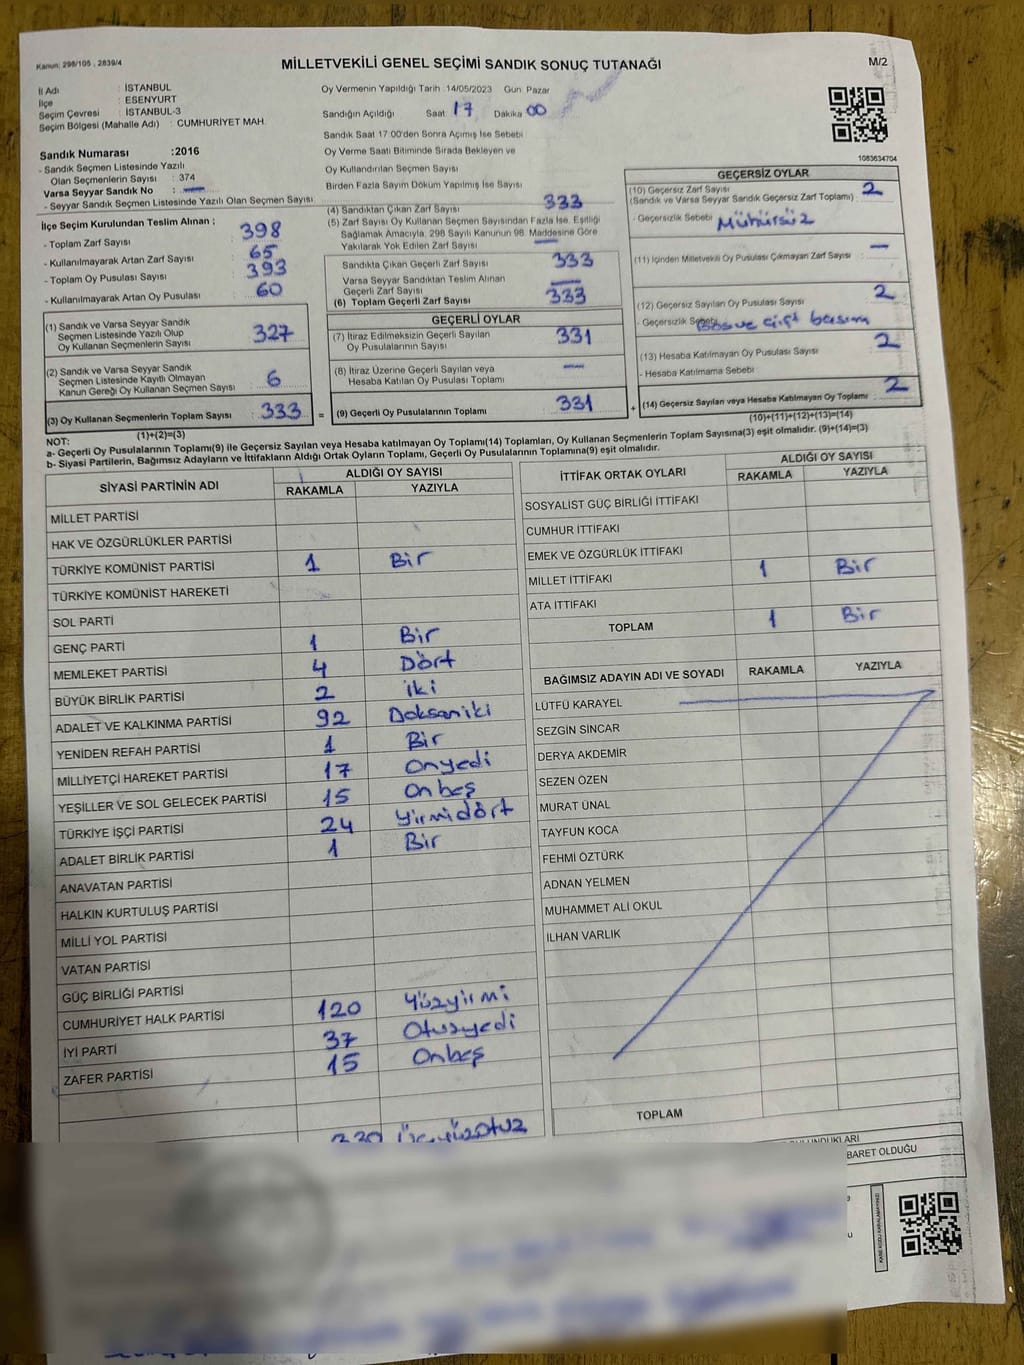 Kanun: 298/105 , 2839/4
MİLLETVEKİLİ GENEL SEÇİMİ SANDIK SONUÇ TUTANAĞI
M/2
İl Adı : İSTANBUL
İlçe : ESENYURT
Seçim Çevresi : İSTANBUL-3
Seçim Bölgesi (Mahalle Adı) : CUMHURİYET MAH.
Oy Vermenin Yapıldığı Tarih :14/05/2023 Gün: Pazar
Sandığın Açıldığı Saat 17 Dakika 00
Sandık Saat 17:00'den Sonra Açımış İse Sebebi
Oy Verme Saati Bitiminde Sırada Bekleyen ve
Oy Kullandırılan Seçmen Sayısı
Birden Fazla Sayım Döküm Yapılmış İse Sayısı
1083634704
Sandık Numarası :2016
- Sandık Seçmen Listesinde Yazılı
Olan Seçmenlerin Sayısı : 374
Varsa Seyyar Sandık No : —
- Seyyar Sandık Listesinde Yazılı Olan Seçmen Sayısı
İlçe Seçim Kurulundan Teslim Alınan ;
- Toplam Zarf Sayısı : 398
- Kullanılmayarak Artan Zarf Sayısı : 65
- Toplam Oy Pusulası Sayısı : 393
- Kullanılmayarak Artan Oy Pusulası : 60
(1) Sandık ve Varsa Seyyar Sandık
Seçmen Listesinde Yazılı Olup
Oy Kullanan Seçmenlerin Sayısı : 327
(2) Sandık ve Varsa Seyyar Sandık
Seçmen Listesinde Kayıtlı Olmayan
Kanun Gereği Oy Kullanan Seçmen Sayısı : 6
(3) Oy Kullanan Seçmenlerin Toplam Sayısı : 333
(1)+(2)=(3)
(4) Sandıktan Çıkan Zarf Sayısı 333
(5) Zarf Sayısı Oy Kullanan Seçmen Sayısından Fazla İse, Eşitliği
Sağlamak Amacıyla, 298 Sayılı Kanunun 98. Maddesine Göre
Yakılarak Yok Edilen Zarf Sayısı —
Sandıkta Çıkan Geçerli Zarf Sayısı 333
Varsa Seyyar Sandıktan Teslim Alınan
Geçerli Zarf Sayısı —
(6) Toplam Geçerli Zarf Sayısı 333
GEÇERLİ OYLAR
(7) İtiraz Edilmeksizin Geçerli Sayılan
Oy Pusulalarının Sayısı : 331
(8) İtiraz Üzerine Geçerli Sayılan veya
Hesaba Katılan Oy Pusulası Toplamı : —
= (9) Geçerli Oy Pusulalarının Toplamı : 331
GEÇERSİZ OYLAR
(10) Geçersiz Zarf Sayısı
(Sandık ve Varsa Seyyar Sandık Geçersiz Zarf Toplamı) : 2
- Geçersizlik Sebebi : Mühürsüz
(11) İçinden Milletvekili Oy Pusulası Çıkmayan Zarf Sayısı —
(12) Geçersiz Sayılan Oy Pusulası Sayısı : 2
- Geçersizlik Sebebi : Boş ve çift basım
(13) Hesaba Katılmayan Oy Pusulası Sayısı : 2
- Hesaba Katılmama Sebebi
+ (14) Geçersiz Sayılan veya Hesaba Katılmayan Oy Toplamı : 2
(10)+(11)+(12)+(13)=(14)
NOT:
a- Geçerli Oy Pusulalarının Toplamı(9) ile Geçersiz Sayılan veya Hesaba katılmayan Oy Toplamı(14) Toplamları, Oy Kullanan Seçmenlerin Toplam Sayısına(3) eşit olmalıdır. (9)+(14)=(3)
b- Siyasi Partilerin, Bağımsız Adayların ve İttifakların Aldığı Ortak Oyların Toplamı, Geçerli Oy Pusulalarının Toplamına(9) eşit olmalıdır.
SİYASİ PARTİNİN ADI ALDIĞI OY SAYISI
RAKAMLA YAZIYLA
MİLLET PARTİSİ
HAK VE ÖZGÜRLÜKLER PARTİSİ
TÜRKİYE KOMÜNİST PARTİSİ 1 Bir
TÜRKİYE KOMÜNİST HAREKETİ
SOL PARTİ
GENÇ PARTİ 1 Bir
MEMLEKET PARTİSİ 4 Dört
BÜYÜK BİRLİK PARTİSİ 2 iki
ADALET VE KALKINMA PARTİSİ 92 Doksaniki
YENİDEN REFAH PARTİSİ 1 Bir
MİLLİYETÇİ HAREKET PARTİSİ 17 Onyedi
YEŞİLLER VE SOL GELECEK PARTİSİ 15 Onbeş
TÜRKİYE İŞÇİ PARTİSİ 24 Yirmidört
ADALET BİRLİK PARTİSİ 1 Bir
ANAVATAN PARTİSİ
HALKIN KURTULUŞ PARTİSİ
MİLLİ YOL PARTİSİ
VATAN PARTİSİ
GÜÇ BİRLİĞİ PARTİSİ
CUMHURİYET HALK PARTİSİ 120 Yüzyirmi
İYİ PARTİ 37 Otuzyedi
ZAFER PARTİSİ 15 Onbeş
330 Üçyüzotuz
İTTİFAK ORTAK OYLARI ALDIĞI OY SAYISI
RAKAMLA YAZIYLA
SOSYALİST GÜÇ BİRLİĞİ İTTİFAKI
CUMHUR İTTİFAKI
EMEK VE ÖZGÜRLÜK İTTİFAKI
MİLLET İTTİFAKI 1 Bir
ATA İTTİFAKI
TOPLAM 1 Bir
BAĞIMSIZ ADAYIN ADI VE SOYADI RAKAMLA YAZIYLA
LÜTFÜ KARAYEL
SEZGİN SİNCAR
DERYA AKDEMİR
SEZEN ÖZEN
MURAT ÜNAL
TAYFUN KOCA
FEHMİ ÖZTÜRK
ADNAN YELMEN
MUHAMMET ALİ OKUL
İLHAN VARLIK
TOPLAM
BULUNDUKLARI
BARET OLDUĞU